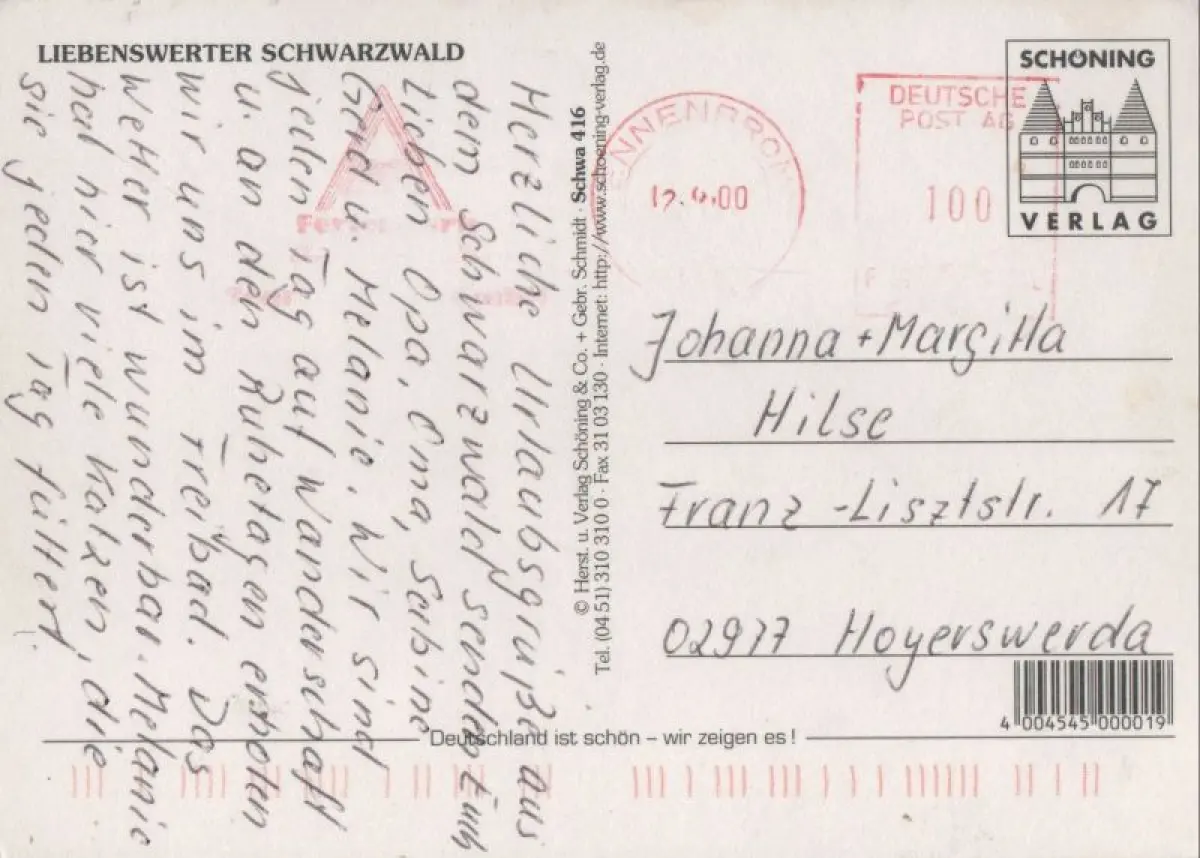 LIEBENSWERTER SCHWARZWALD
Herzliche Urlaubsgrüße aus
dem Schwarzwald senden Euch
Lieben Opa, Oma, Serbine
Gerd u. Melanie. Wir sind
jeden Tag auf Wanderschaft
u. an den Ruhetagen erholen
wir uns im Freibad. Das
Wetter ist wunderbar. Melanie
hat hier viele Katzen, die
sie jeden Tag füttert.
© Herst. u. Verlag Schöning & Co. + Gebr. Schmidt · Schwa 416
Tel. (04 51) 310 310 0 · Fax 31 03 130 · Internet: http://www.schoening-verlag.de
DEUTSCHE
POST AG
100
.00
SCHÖNING
VERLAG
Johanna + Margitta
Hilse
Franz-Lisztstr. 17
02977 Hoyerswerda
4 004545 000019
Deutschland ist schön – wir zeigen es!